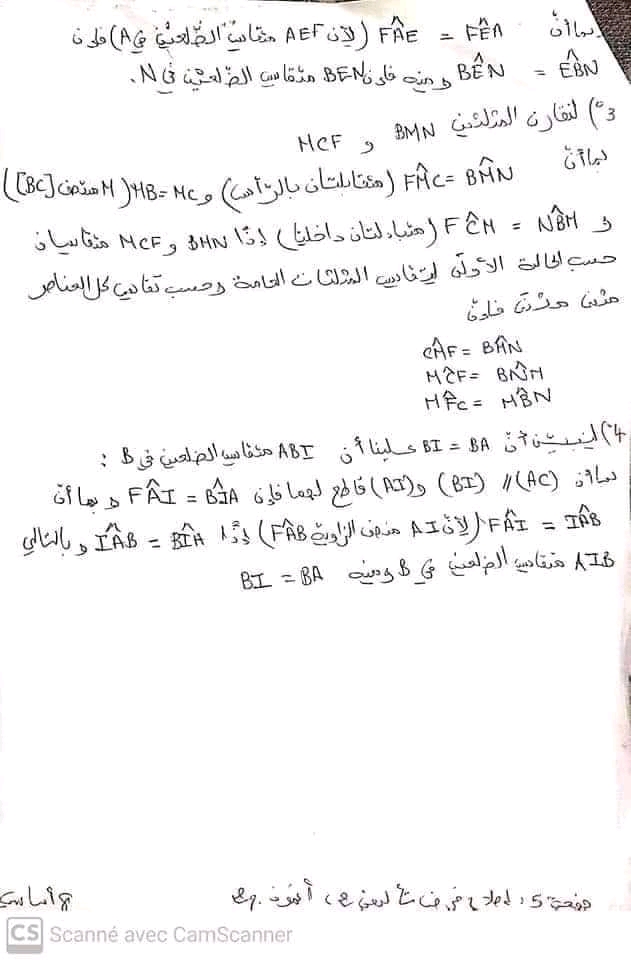 بما أنّ FÊA = FÂE (لأن AEF متقايس الضلعين في A) فإن
EB̂N = BÊN ومنه فإن BEN متقايس الضلعين في N.
3°) لنقارن المثلثين BMN و MCF
بما أنّ BM̂N = FM̂C (متقابلتان بالرأس) و MB = MC (M منتصف [BC])
و NB̂M = FĈM (متبادلتان داخليا) إذًا BMN و MCF متقايسان
حسب الحالة الأولى لتقايس المثلثات العامة وحسب تقايس كل العناصر
مثنى مثنى فإنّ
CM̂F = BM̂N
MĈF = BN̂M
MF̂C = MB̂N
4°) لنبيّن أنّ BI = BA علينا أن ABI متقايس الضلعين في B :
بما أن (AC) // (BI) و (AI) قاطع لهما فإن FÂI = BÎA و بما أن
FÂI = IÂB (لأنّ AI منصف الزاوية FÂB) إذًا IÂB = BÎA و بالتالي
AIB متقايس الضلعين في B ومنه BI = BA
صفحة 5 : إصلاح فرض
8 أساسي
CS Scanné avec CamScanner